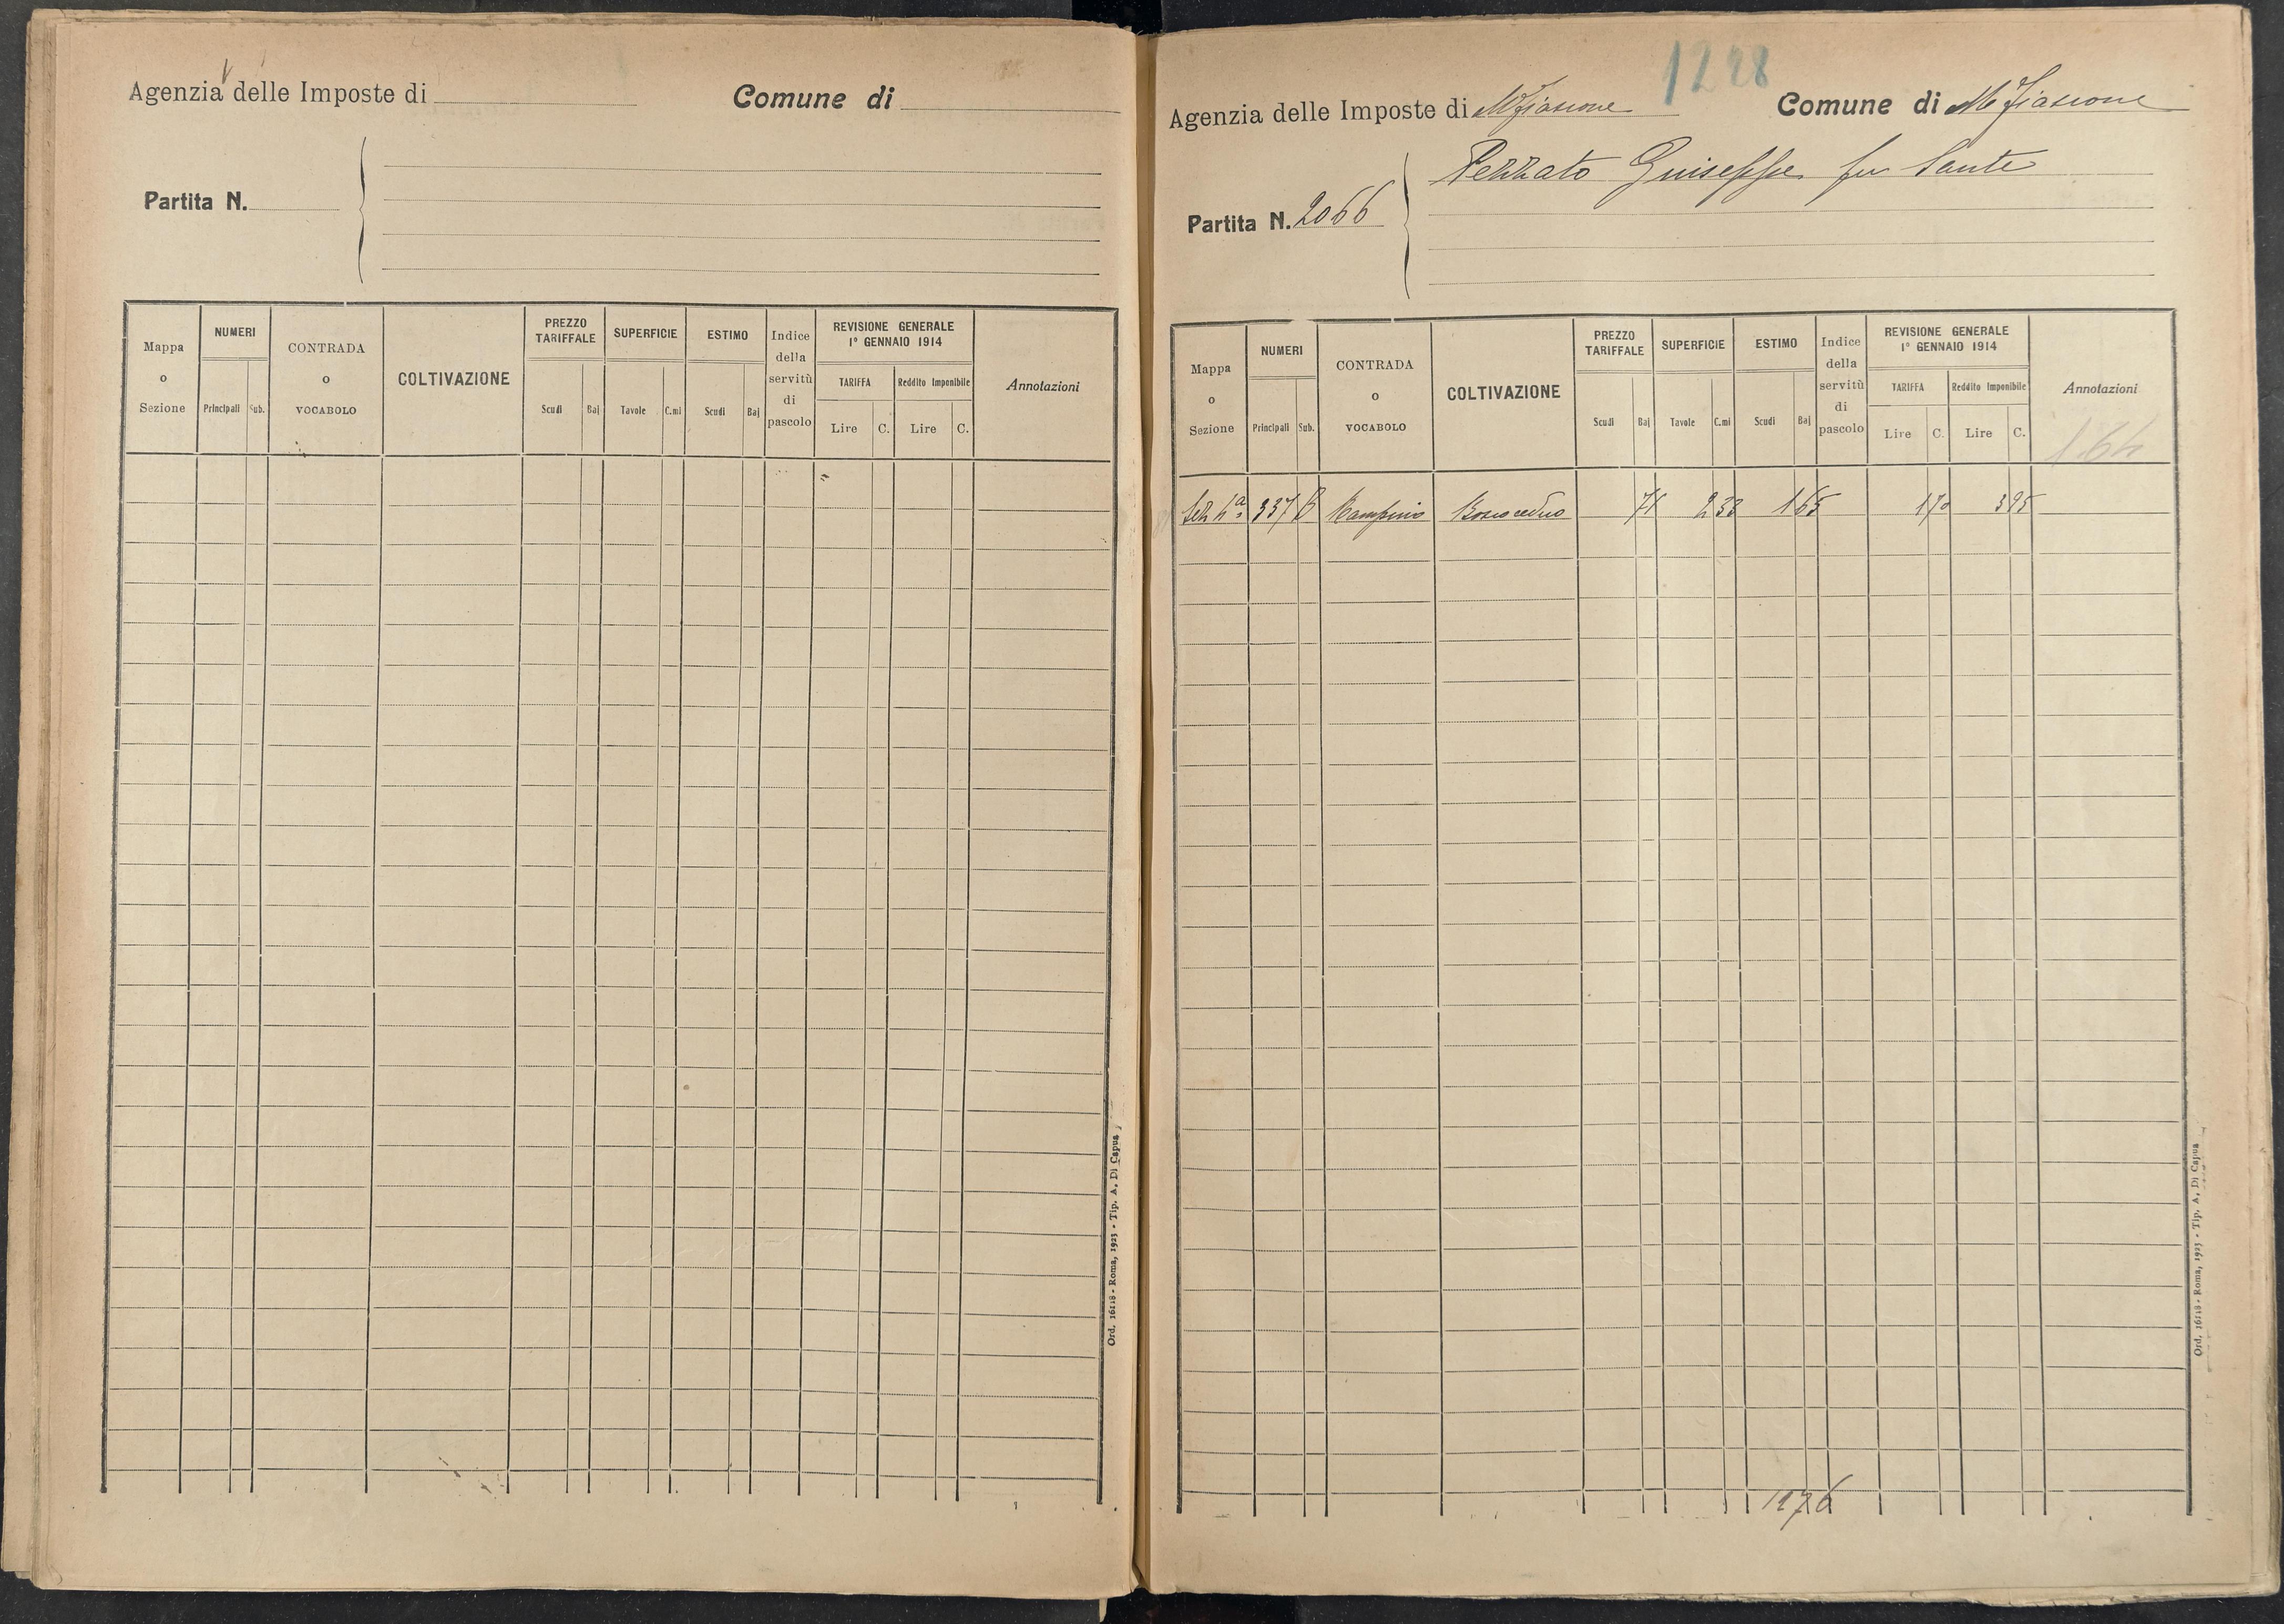 Agenzia delle Imposte di
Comune di
Partita N.
Mappa o Sezione
NUMERI
Principali
Sub.
CONTRADA o VOCABOLO
COLTIVAZIONE
PREZZO TARIFFALE
Scudi
Baj
SUPERFICIE
Tavole
C.mi
ESTIMO
Scudi
Baj
Indice della servitù di pascolo
REVISIONE GENERALE
1° GENNAIO 1914
TARIFFA
Reddito Imponibile
Lire
C.
Lire
C.
Annotazioni
Ord. 16118 - Roma, 1923 - Tip. A. Di Capua
1228
Agenzia delle Imposte di Mfiascone
Comune di M fiascone
Pezzato Giuseppe fu Sante
Partita N. 2066
Mappa o Sezione
NUMERI
Principali
Sub.
CONTRADA o VOCABOLO
COLTIVAZIONE
PREZZO TARIFFALE
Scudi
Baj
SUPERFICIE
Tavole
C.mi
ESTIMO
Scudi
Baj
Indice della servitù di pascolo
REVISIONE GENERALE
1° GENNAIO 1914
TARIFFA
Reddito Imponibile
Lire
C.
Lire
C.
Annotazioni
164
Sez 4ª 337 Bosco ceduo 71 233 165 170 395
1276
Ord. 16118 - Roma, 1923 - Tip. A. Di Capua